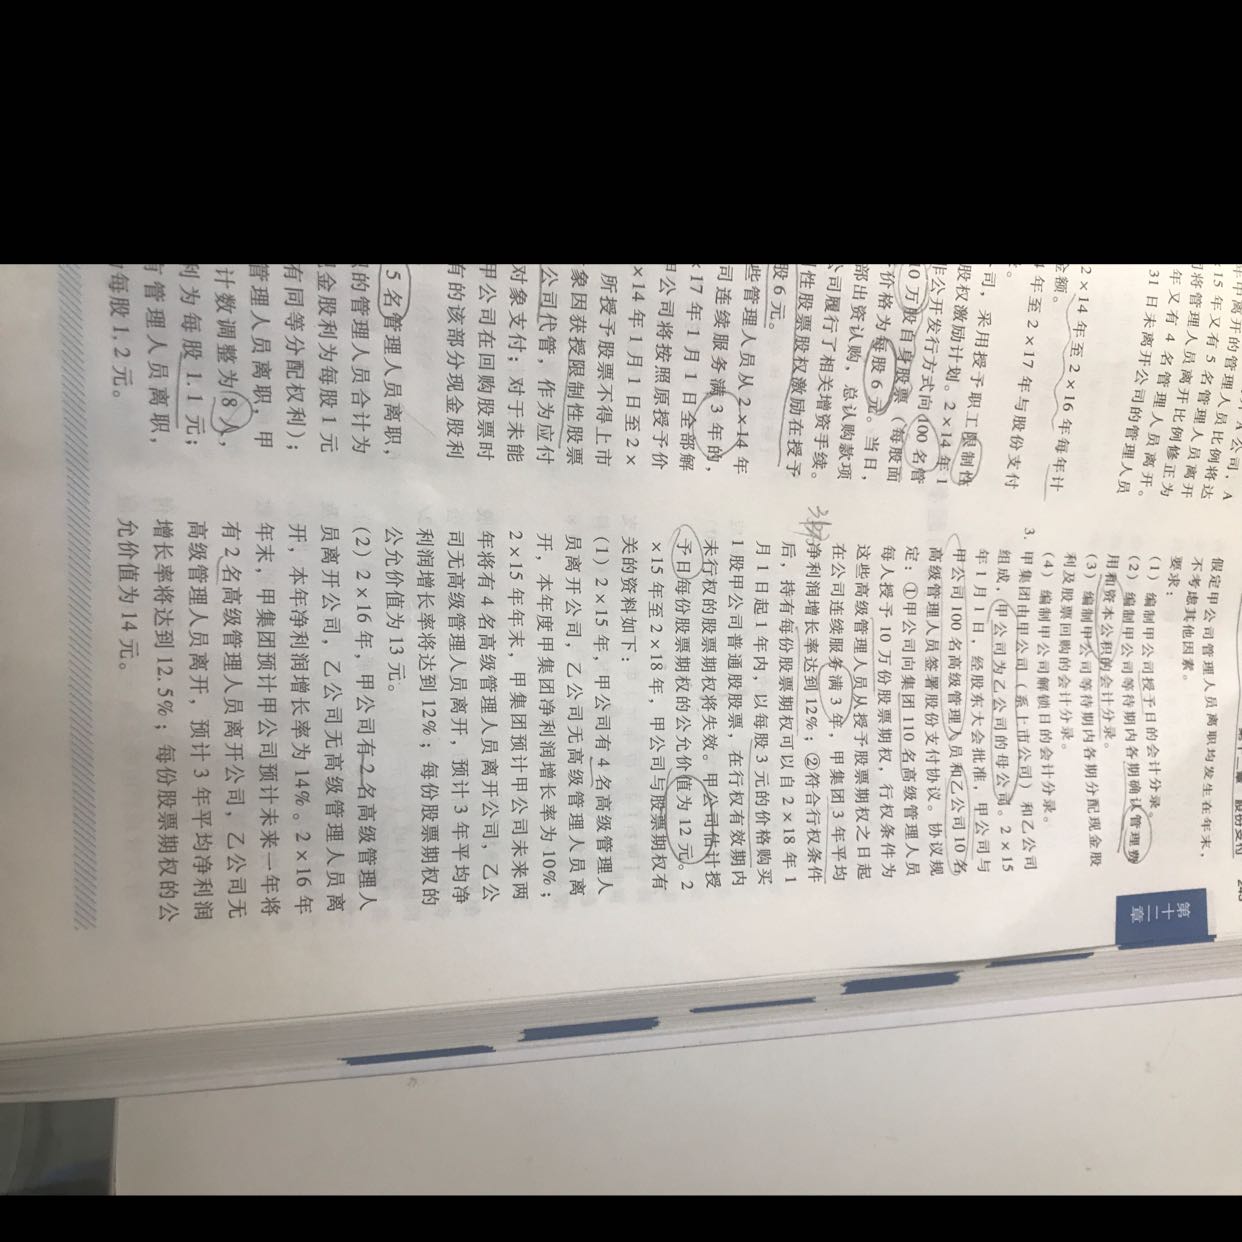 年中离开的管理人员比例将达
×15年又有5名管理人员离开
年又有4名管理人员离开。
31日未离开公司的管理人员
2×14年至2×16年每年计
金额。
4年至2×17年与股份支付
司,采用授予职工限制性
股权激励计划。2×14年1
非公开发行方式向100名管
10万股自身股票(每股面
价格为每股6元。当日,
部出资认购,总认购款项
公司履行了相关增资手续。
性股票股权激励在授予
股6元。
些管理人员从2×14年
司连续服务满3年的,
×17年1月1日全部解
甲公司将按照原授予价
×14年1月1日至2×
所授予股票不得上市
象因获授限制性股票
公司代管,作为应付
对象支付;对于未能
甲公司在回购股票时
有的该部分现金股利
5名管理人员离职,
的管理人员合计为
金股利为每股1元
有同等分配权利);
管理人员离职,甲
计数调整为8人,
利为每股1.1元;
管理人员离职,
每股1.2元。
第十二章
假定甲公司管理人员离职均发生在年末,
不考虑其他因素。
要求:
(1)编制甲公司授予日的会计分录。
(2)编制甲公司等待期内各期确认管理费
用和资本公积的会计分录。
(3)编制甲公司等待期内各期分配现金股
利及股票回购的会计分录。
(4)编制甲公司解锁日的会计分录。
3.甲集团由甲公司(系上市公司)和乙公司
组成,甲公司为乙公司的母公司。2×15
年1月1日,经股东大会批准,甲公司与
甲公司100名高级管理人员和乙公司10名
高级管理人员签署股份支付协议。协议规
定:①甲公司向集团110名高级管理人员
每人授予10万份股票期权,行权条件为
这些高级管理人员从授予股票期权之日起
在公司连续服务满3年,甲集团3年平均
净利润增长率达到12%;②符合行权条件
后,持有每份股票期权可以自2×18年1
月1日起1年内,以每股3元的价格购买
1股甲公司普通股股票,在行权有效期内
未行权的股票期权将失效。甲公司估计授
予日每份股票期权的公允价值为12元。2
×15年至2×18年,甲公司与股票期权有
关的资料如下:
(1)2×15年,甲公司有4名高级管理人
员离开公司,乙公司无高级管理人员离
开,本年度甲集团净利润增长率为10%;
2×15年年末,甲集团预计甲公司未来两
年将有4名高级管理人员离开公司,乙公
司无高级管理人员离开,预计3年平均净
利润增长率将达到12%;每份股票期权的
公允价值为13元。
(2)2×16年,甲公司有2名高级管理人
员离开公司,乙公司无高级管理人员离
开,本年净利润增长率为14%。2×16年
年末,甲集团预计甲公司预计未来一年将
有2名高级管理人员离开公司,乙公司无
高级管理人员离开,预计3年平均净利润
增长率将达到12.5%;每份股票期权的公
允价值为14元。